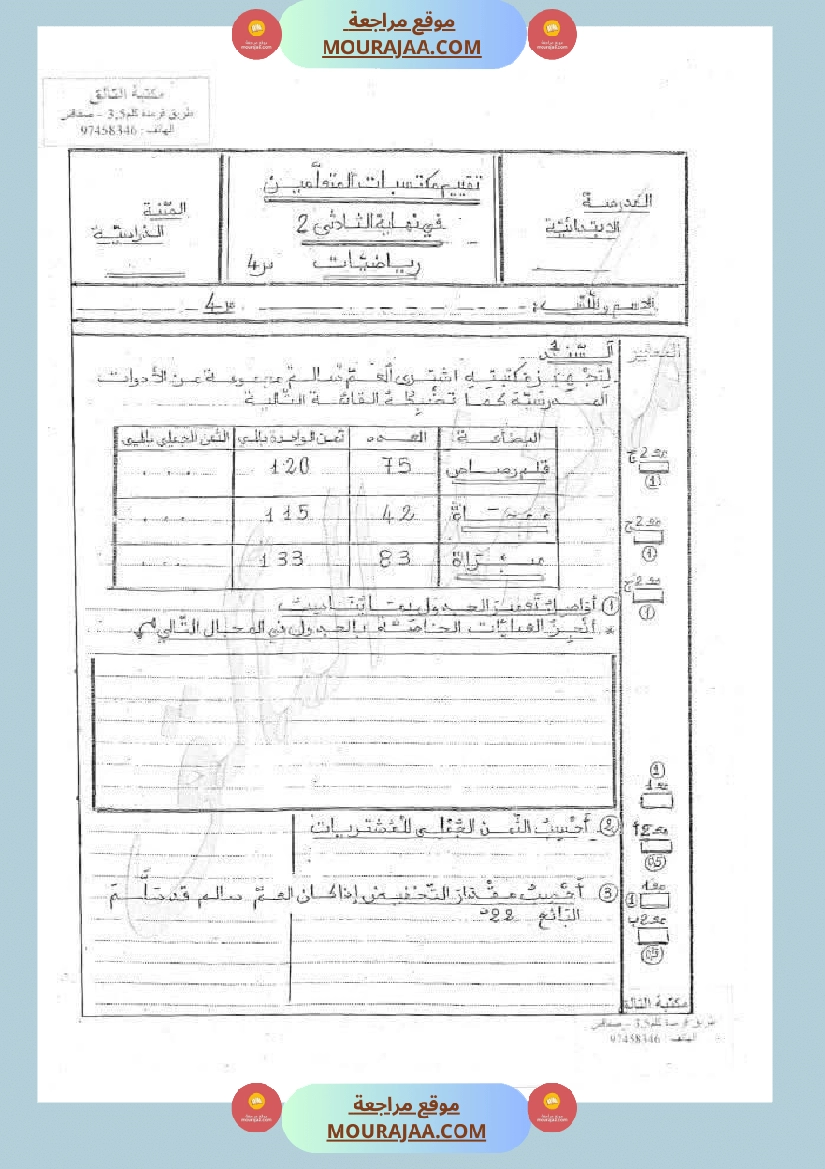 موقع مراجعة
MOURAJAA.COM
مكتبة التالق
طريق قرمدة كلم 3,5 - صفاقس
الهاتف : 97458346
المدرسة
الابتدائيّة
تقييم مكتسبات المتعلّمين
في نهاية الثلاثي 2
رياضيّات س4
السّنة
الدّراسيّة
الاسم واللّقب : س4
المعايير
السّند 1
لتجهيز مكتبته اشترى العمّ سالم مجموعة من الأدوات
المدرسيّة كما تضبطه القائمة التّالية
البضاعة العدد ثمن الواحدة بالمي الثّمن الجملي بالمي
قلم رصاص 75 120 ....
ممحاة 42 115 ....
مبراة 83 133 ....
مع2ج
(1)
مع2ج
(1)
مع2ج
(1)
① أواصل تعمير الجدول بما يناسب
* أنجز العمليّات الخاصّة بالجدول في المجال التّالي
(1)
مع1
② أحسب الثّمن الجملي للمشتريات
مع2أ
(0,5)
③ أحسب مقدار التّخفيض إذا كان العمّ سالم قد سلّم
البائع 22د
مع1
(1)
مع2ب
(0,5)
مكتبة التالق
طريق قرمدة كلم 3,5 - صفاقس
الهاتف : 97458346
موقع مراجعة
MOURAJAA.COM